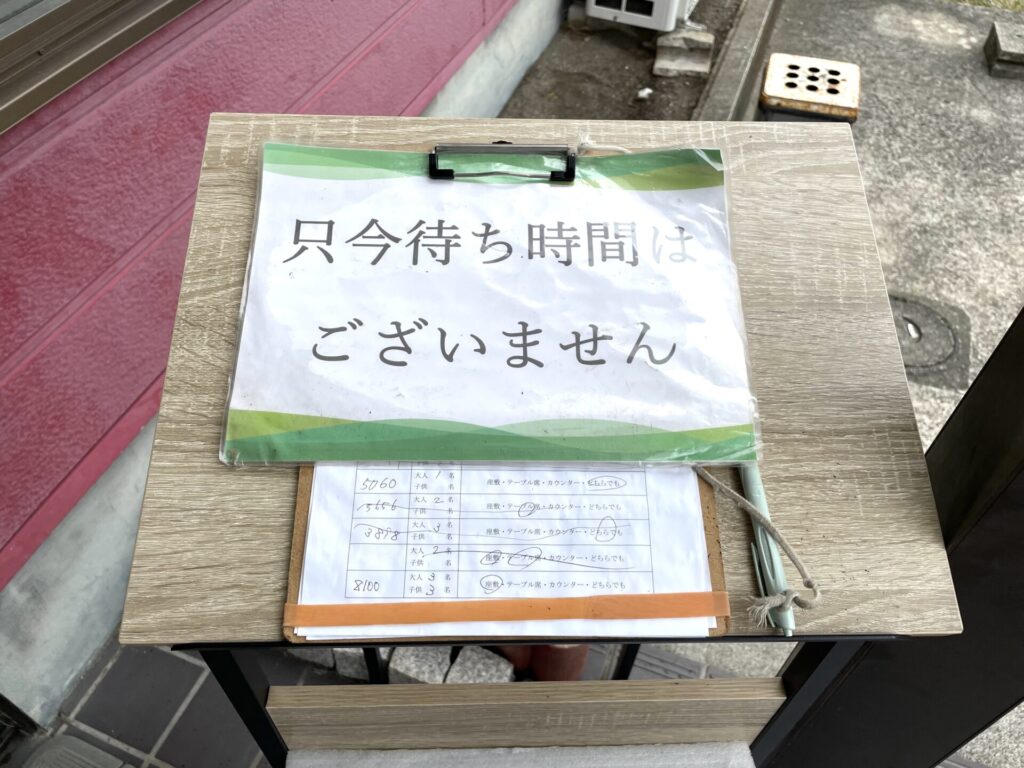 只今待ち時間は
ございません
5060 大人 1 名 座敷・テーブル席・カウンター・どちらでも
子供 名
大人 2 名 座敷・テーブル席・カウンター・どちらでも
子供 名
大人 3 名 座敷・テーブル席・カウンター・どちらでも
子供 名
大人 2 名 座敷・テーブル席・カウンター・どちらでも
子供 名
8100 大人 3 名 座敷・テーブル席・カウンター・どちらでも
子供 3 名